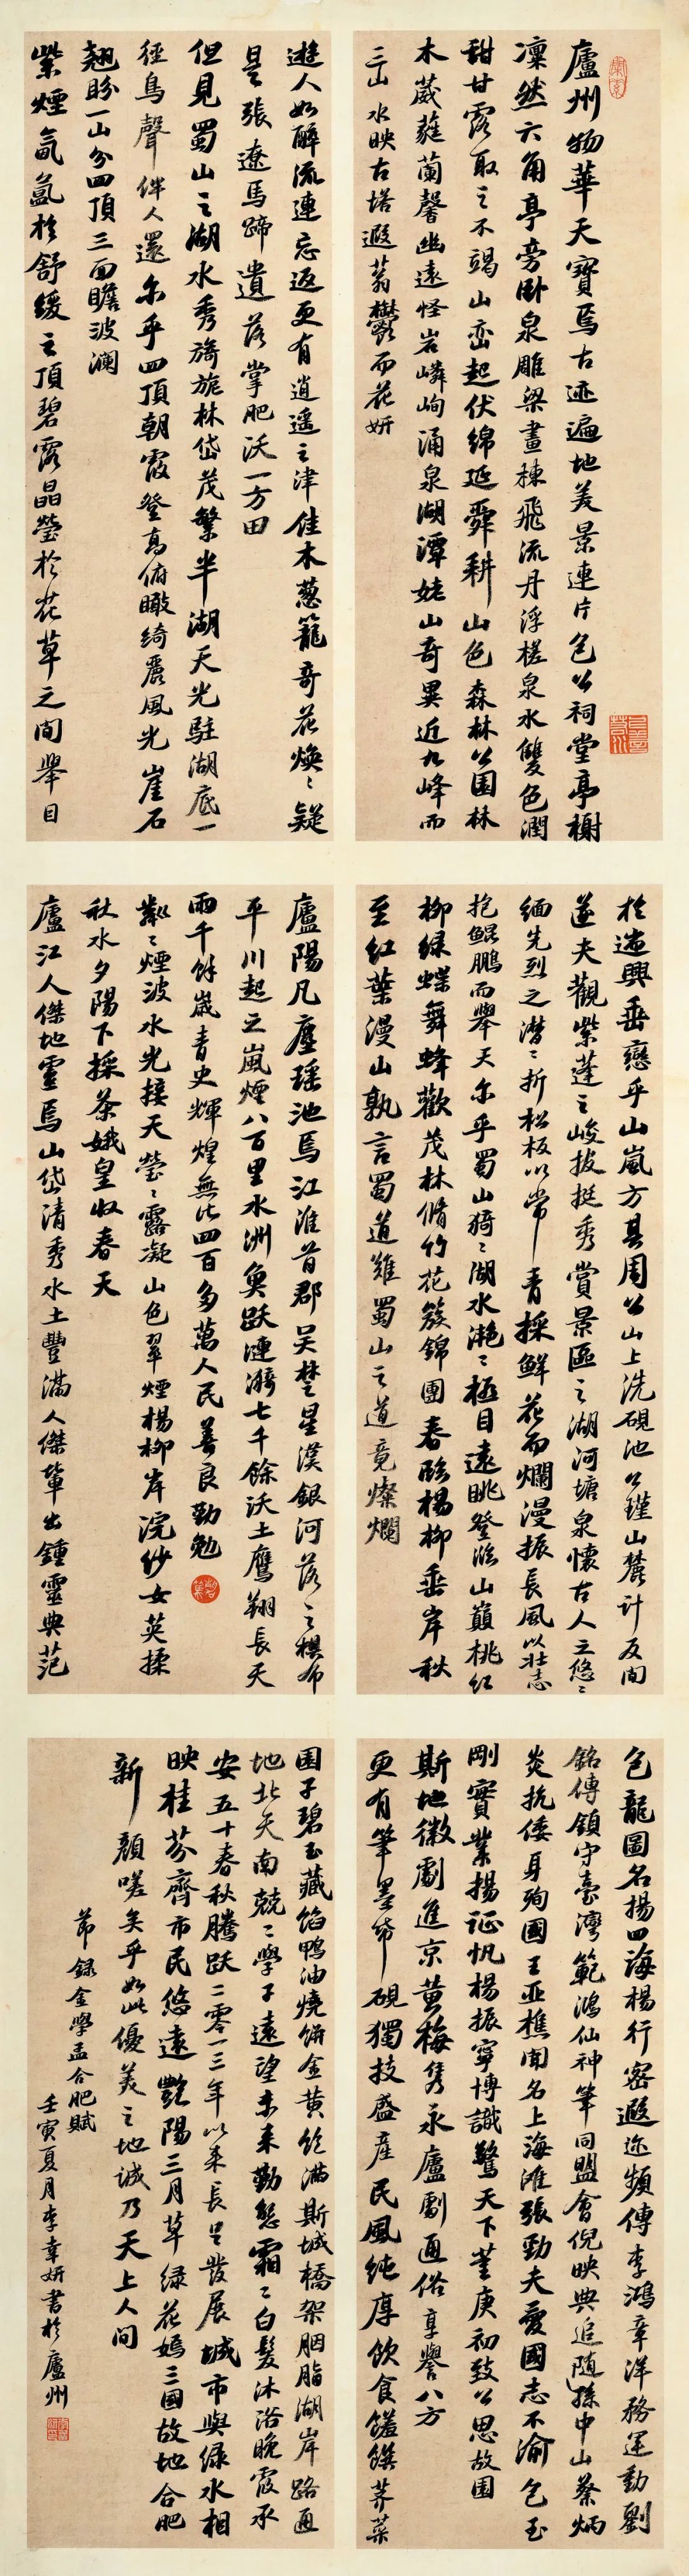 廬州物華天寶焉古迹遍地美景連片包公祠堂亭榭
凜然六角亭旁卧泉雕梁畫棟飛流丹浮槎泉水雙色潤
甜甘露取之不竭山巒起伏綿延舜耕山色森林公園林
木葳蕤蘭馨幽遠怪岩嶙峋涌泉湖潭姥山奇異近九峰而
三山水映古塔遐蓊鬱而花妍
遊人如醉流連忘返更有逍遥之津佳木蔥籠奇花焕〻疑
是張遼馬蹄遺落掌肥沃一方田
但見蜀山之湖水秀旖旎林岱茂繁半湖天光駐湖底一
徑鳥聲伴人還尔乎四頂朝霞登高俯瞰綺麗風光崖石
翹盼一山分四頂三面瞻波瀾
紫煙氤氳於舒緩之頂碧露晶瑩於花草之間舉目
於遄興垂戀乎山嵐方其周公山上洗硯池公瑾山麓計反間
遂夫觀紫蓬之峻拔挺秀賞景區之湖河塘泉懷古人之悠〻
緬先烈之潸〻折松板以常青採鮮花而爛漫振長風以壯志
抱鯤鵬而舉天尔乎蜀山猗〻湖水灔〻極目遠眺登臨山巔桃紅
柳绿蝶舞蜂歡茂林脩竹花簇錦團春臨楊柳垂岸秋
至紅葉漫山孰言蜀道難蜀山之道竟燦爛
廬陽凡塵瑶池焉江淮首郡吴楚星漢銀河落之棋布
平川起之嵐煙八百里水洲魚跃漣漪七千餘沃土鷹翔長天
兩千餘歲青史輝煌無比四百多萬人民善良勤勉
粼〻煙波水光接天瑩〻露凝山色翠煙楊柳岸浣紗女英揉
秋水夕陽下採茶娥皇收春天
廬江人傑地靈焉山岱清秀水土豐滿人傑輩出鍾靈典范
包龍圖名揚四海楊行密遐迩頻傳李鴻章洋務運動劉
銘傳鎮守臺灣範鴻仙神筆同盟會倪映典追随孫中山蔡炳
炎抗倭身殉國王亚樵聞名上海滩張勁夫愛國志不渝包玉
剛實業揚证帆楊振寧博識驚天下董庚初致公思故園
斯地徽劇進京黄梅隽永廬劇通俗享譽八方
更有筆墨帋硯獨技盛産民風纯厚飲食饈饌荠菜
圆子碧玉藏馅鴨油燒餅金黄飽滿斯城橋架胭脂湖岸路通
地北天南兢〻學子遠望未来勤懇霜〻白髮沐浴晚霞承
安五十春秋騰跃二零一三年以来長足發展城市與绿水相
映桂芬齊市民悠遠艷陽三月草绿花嫣三國故地合肥
新顔嗟矣乎如此優美之地诚乃天上人间
節録金學孟合肥賦
壬寅夏月李幸妍書於廬州